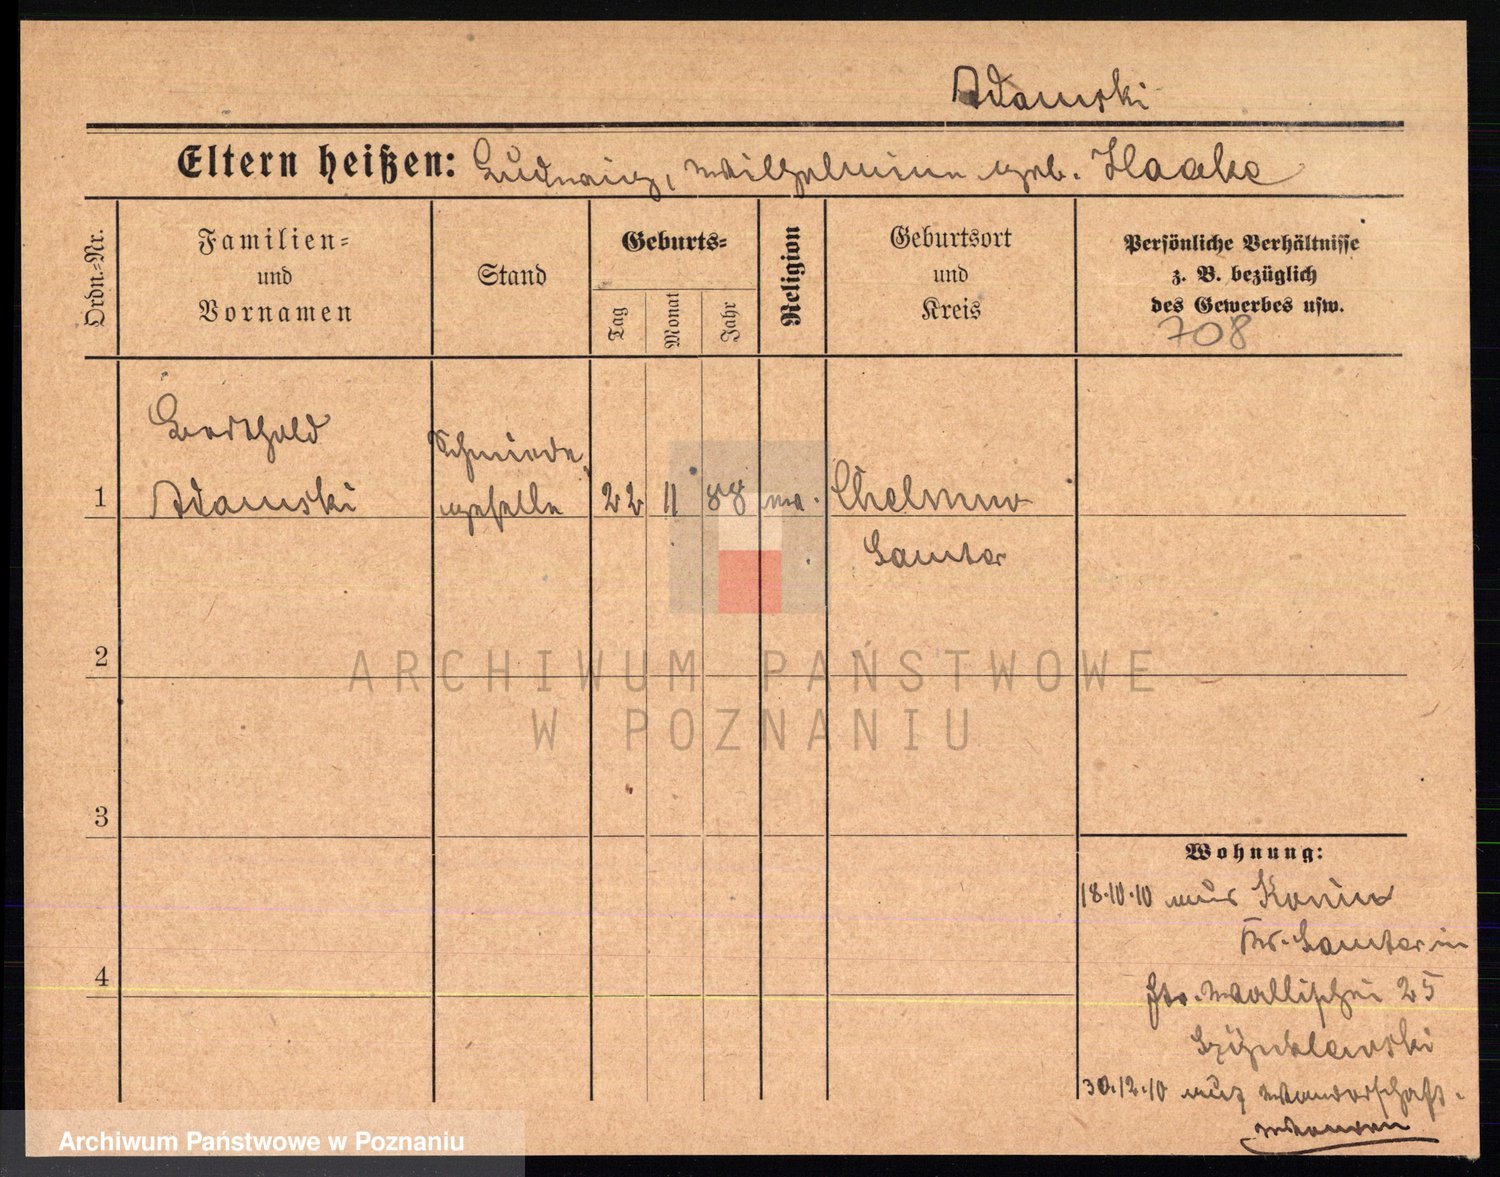 Adamski
Eltern heißen: Ludwig, Wilhelmine geb. Haake
Ordn.-Nr.
Familien-
und
Vornamen
Stand
Geburts-
Tag
Monat
Jahr
Religion
Geburtsort
und
Kreis
Persönliche Verhältnisse
z. B. bezüglich
des Gewerbes usw.
708
1
Berthold
Adamski
Schmiede
geselle
22 11 88
Chelmno
Samter
2
ARCHIWUM PAŃSTWOWE
W POZNANIU
3
4
Wohnung:
18.10.10 aus Konin
Kr. Samter in
Wallischei 25
30.12.10 auf Wanderschaft
Archiwum Państwowe w Poznaniu